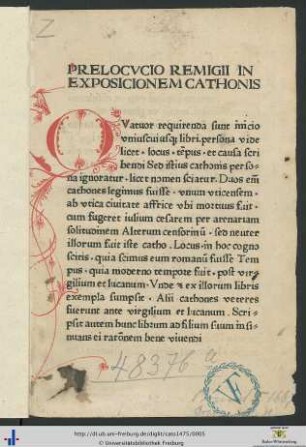 Z
PRELOCVCIO REMIGII IN
EXPOSICIONEM CATHONIS
QVatuor requirenda sunt inicio
vniuscuiusq; libri. persona vide
licet · locus · tēpus · et causa scri
bendi Sed istius cathonis perso
na ignoratur · licet nomen sciatur. Duos em̄
cathones legimus fuisse · vnum vticensem ·
ab vtica ciuitate affrice vbi mortuus fuit ·
cum fugeret iulium cesarem per arenariam
solitudinem Alterum censorinū · sed neuter
illorum fuit iste catho . Locus · in hoc cogno
scitis · quia scimus eum romanū fuisse Tem
pus · quia moderno tempore fuit · post vir
gilium et lucanum · Vnde ex illorum libris
exempla sumpsit · Alii cathones veteres
fuerunt ante virgilium et lucanum . Scri
psit autem hunc libꝝum ad filium suum insi
nuans ei rac̄onem bene viuendi
48376
http://dl.ub.uni-freiburg.de/diglit/cato1475/0005
© Universitätsbibliothek Freiburg